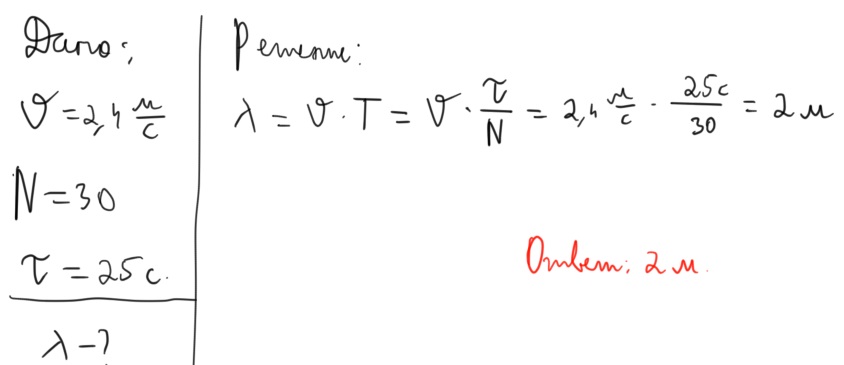 Дано:
υ = 2,4 м/с
N = 30
τ = 25 с.
λ - ?
Решение:
λ = υ · T = υ · τ/N = 2,4 м/с · 25с/30 = 2 м
Ответ: 2 м.